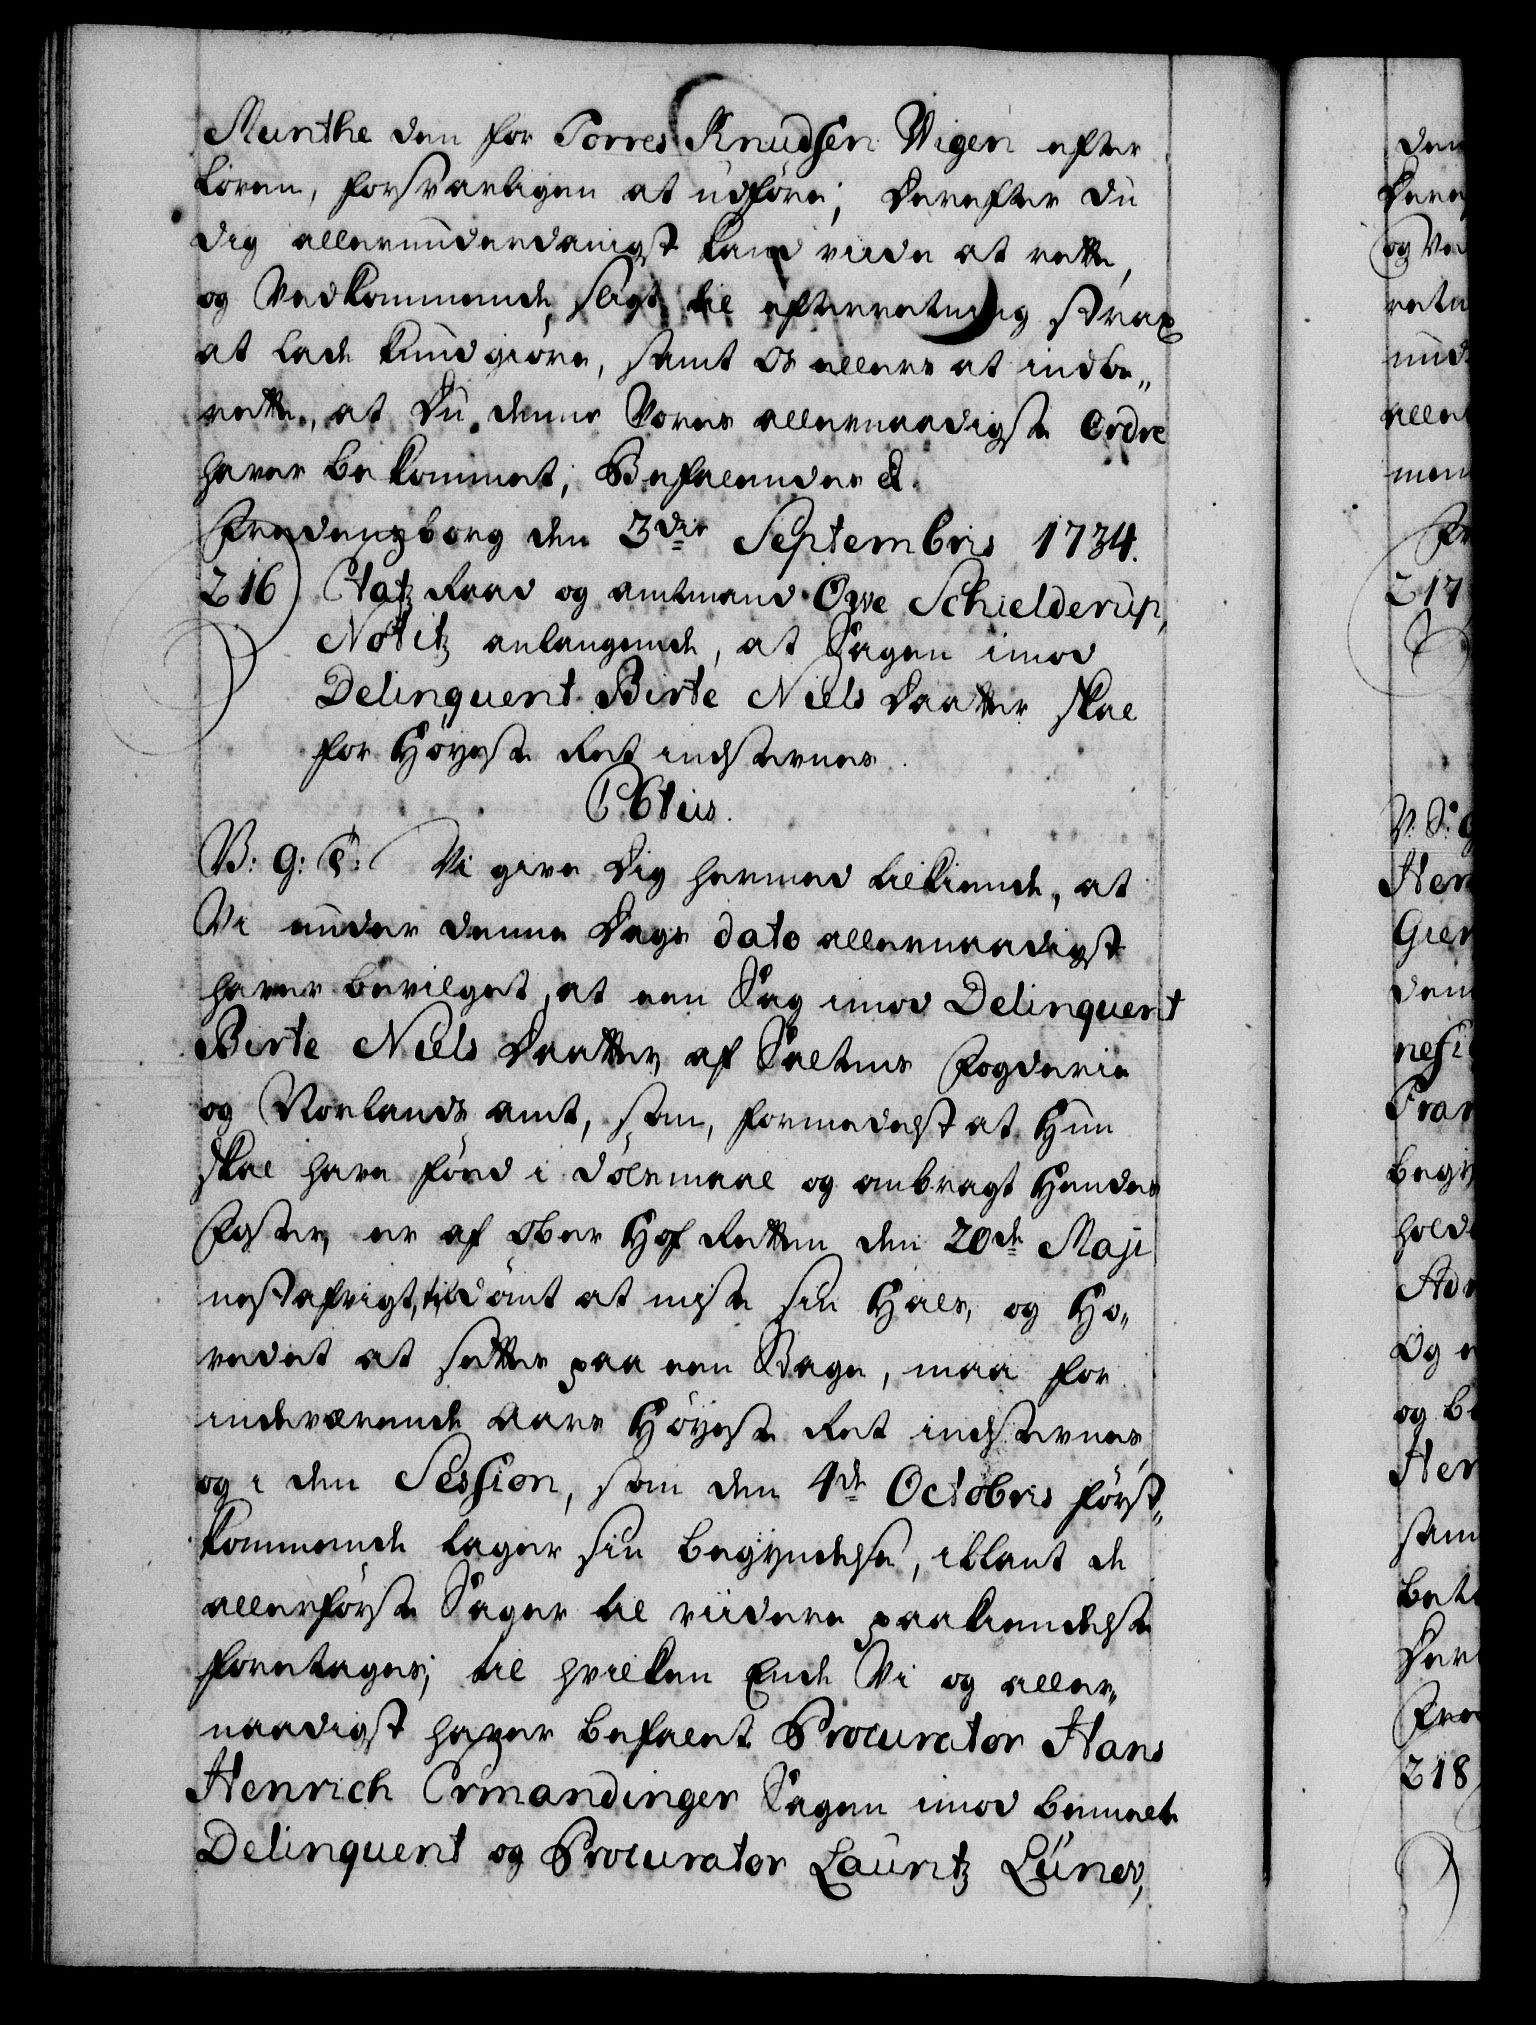 Munthe den for Torres Knudsen Wigen efter
Loven, forsvarligen at udføre; Derefter du
dig allerunderdanigst kand viide at rette,
og Vedkommende sligt til efterretning strax
at lade kundgiøre, samt os ellers at indbe„
rette, at du denne Vores allernaadigste Ordre
haver bekommet; Befalendes &.
Fredensborg den 3die Septembris 1734.
216) Etatz Raad og amtmand Owe Schielderup,
Notitz anlangende, at Sagen imod
Delinquent Birte Niels Daatter skal
for Høyeste Ret indstevnes.
C6tus.
V: g: T: Vi give Dig hermed tilkiende, at
Vi under denne Dags dato allernaadigst
haver bevilget, at een Sag imod Delinquent
Birte Niels Daatter, af Saltens Fogderie
og Norlands amt, som, formedelst at Hun
skal have fød i dølsmaal og ombragt Hendes
Foster, er af Ober Hof Retten den 20de Maji
nestafvigt, tildømt at miste sin Hals, og Ho„
vedet at sættes paa een Stage, maa for
indeværende Aars Høyeste Ret indstevnes,
og i den Session, som den 4de Octobris først„
kommende tager sin begyndelse, iblant de
allerførste Sager til viidere paakiendelse
foretages; til hvilken Ende Vi og aller„
naadigst haver befalet Procurator Hans
Henrich Ormandinger Sagen imod bemelte
Delinquent og Procurator Lauritz Luno,
den
Dere
og Ve
rete
und
aller
men
Fr
217
V: S: g
Hen
Gier
dem
nesi
Fran
begi
holde
Adv
Og e
og be
Her
sam
bete
Der
Fre
218